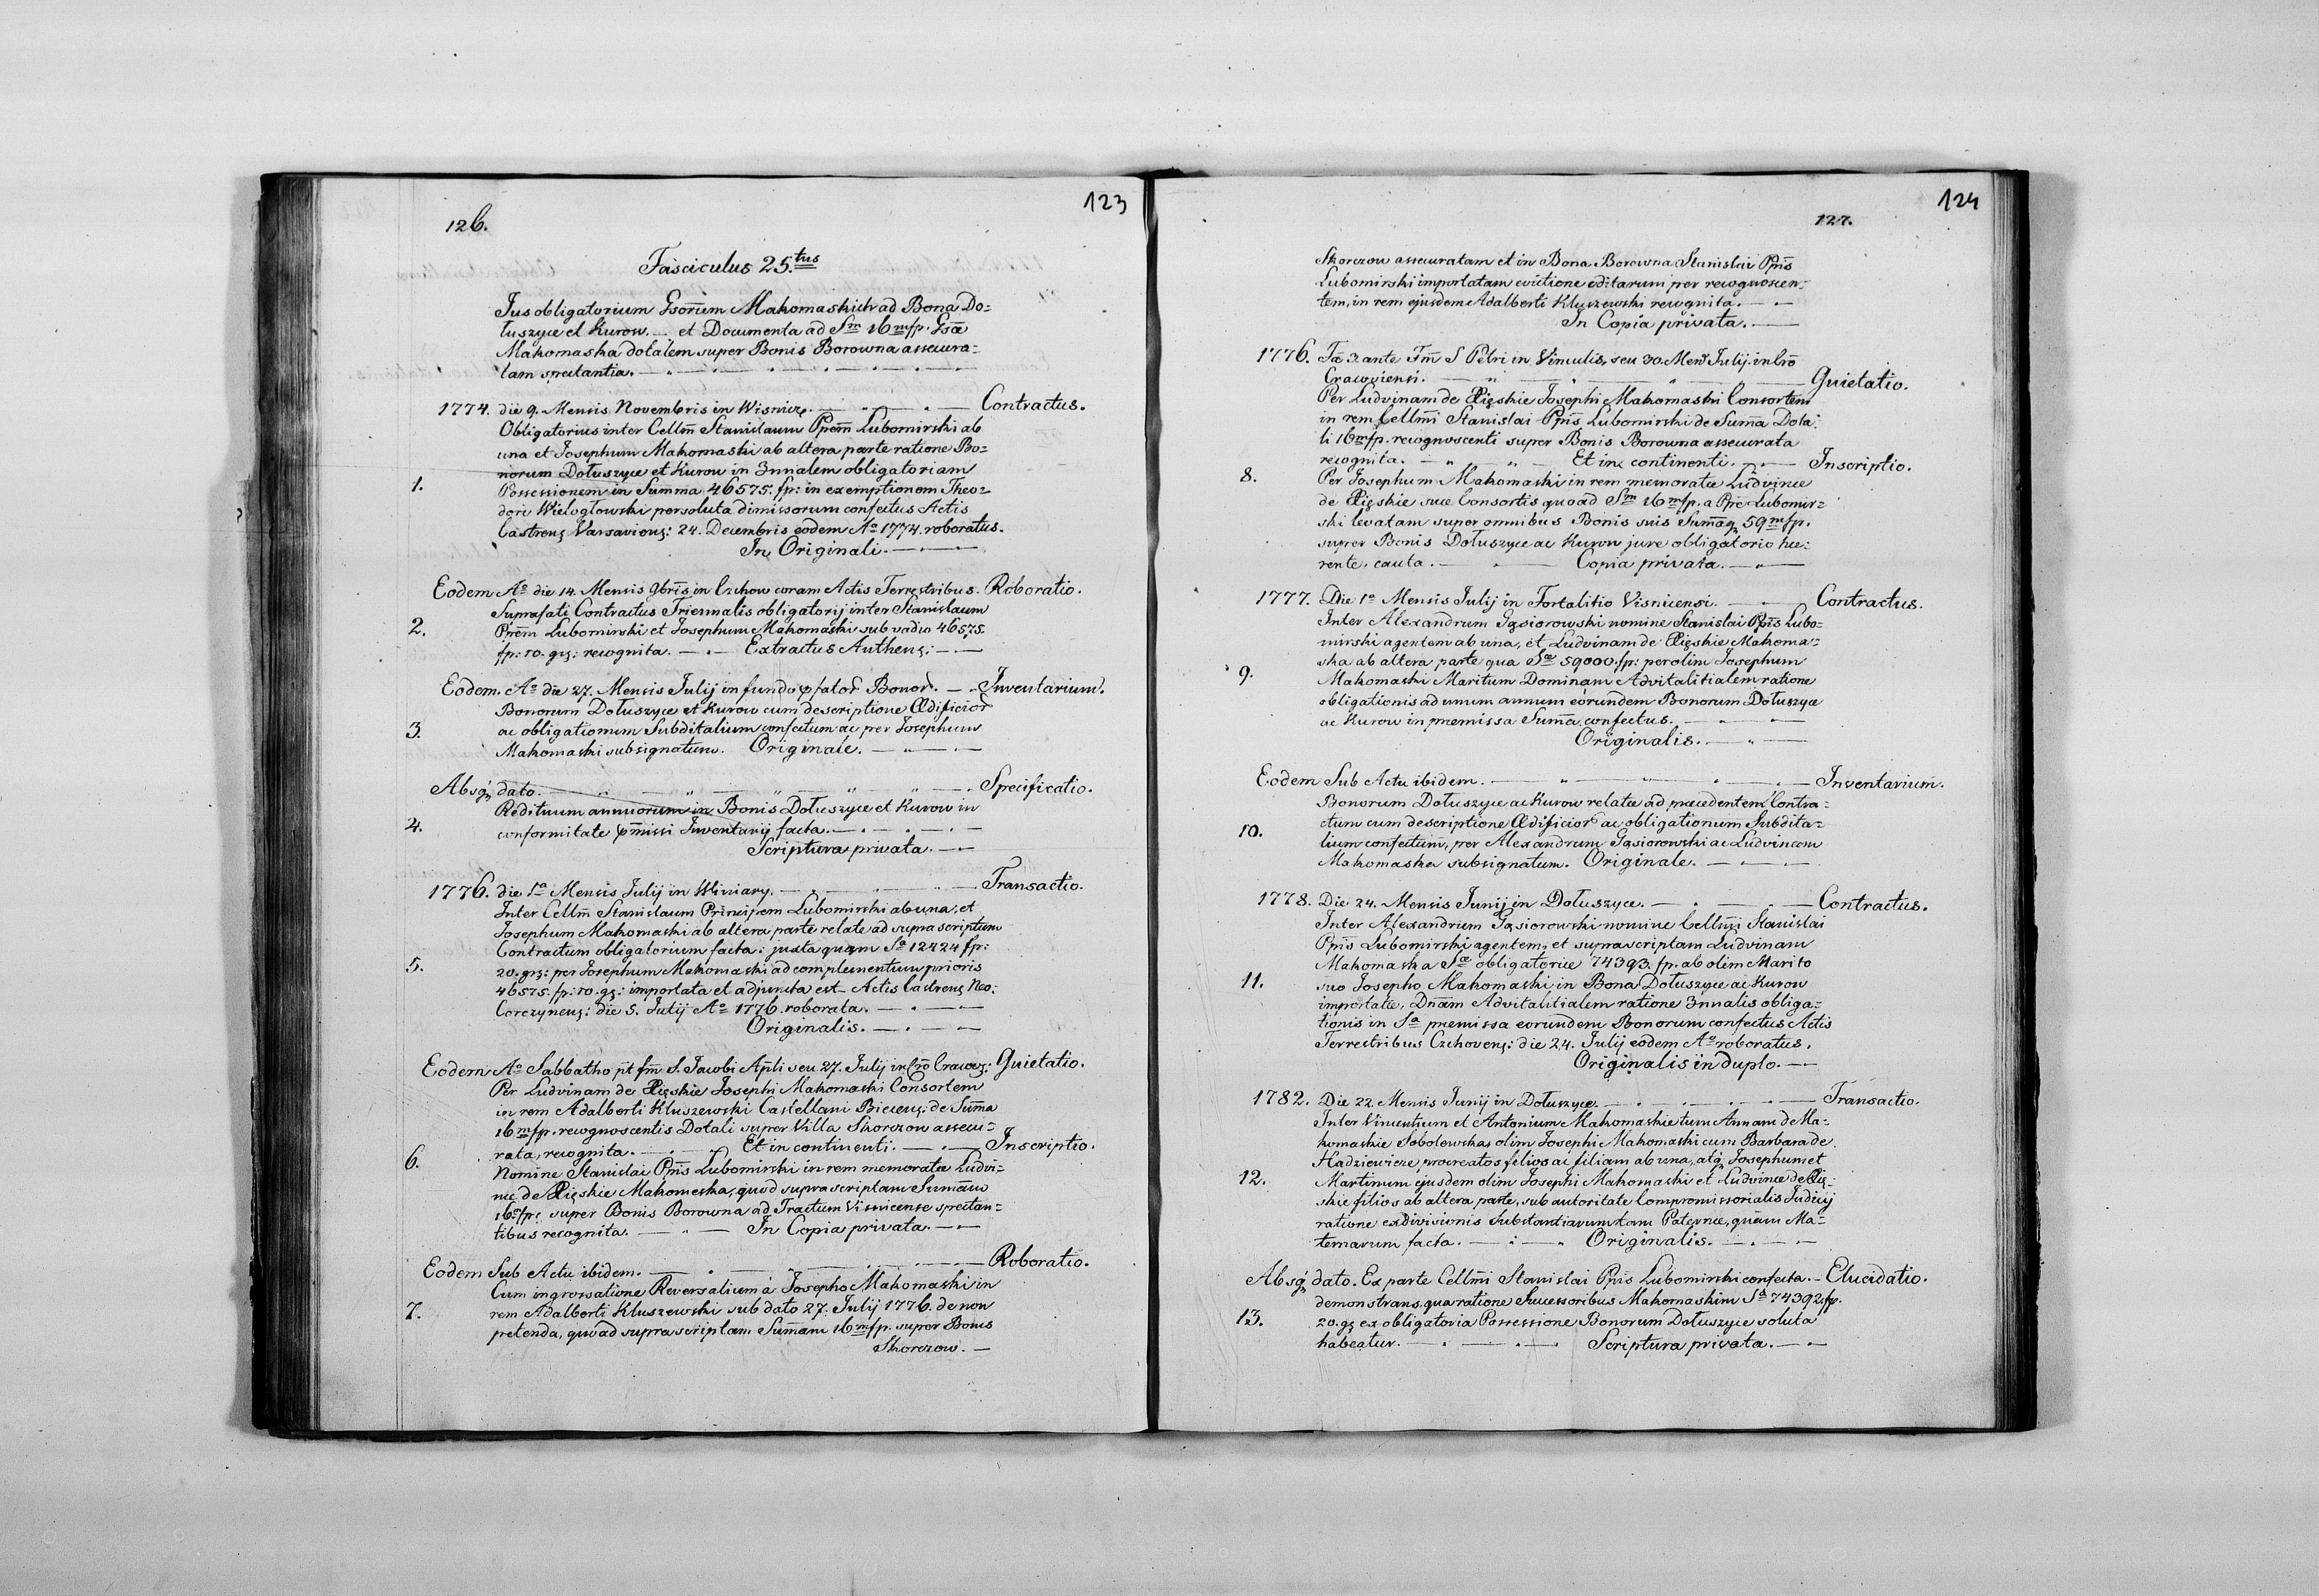 123
126.
Fasciculus 25.tus
Jus obligatorium Gsorum Makomaskich ad Bona Do=
tuszyce et Kurow. — et Documenta ad Sm 16 m/fp. Gsa
Makomaska dotalem super Bonis Borowna assecura=
tam spectantia.
1774. die 9. Mensis Novembris in Wisnicz. Contractus.
Obligatorius inter Cellm Stanislaum Ppem Lubomirski ab
una et Josephum Makomaski ab altera parte ratione Bo=
norum Dołuszyce et Kurow in 3nnalem obligatoriam
1. Possessionem in Summa 46575. fp: in exemptionem Theo=
dori Wielogłowski persoluta dimissorum confectus Actis
Castreng Varsavieng: 24. Decembris eodem Ao 1774. roboratus.
In Originali.
Eodem Ao die 14. Mensis 9bris in Czchow coram Actis Terrestribus. Roboratio.
Suprafati Contractus Triennalis obligatorij inter Stanislaum
2. Ppem Lubomirski et Josephum Makomaski sub vadio 46575.
fp: 10. grg: recognita. — Extractus Autheng:
Eodem. Ao die 27. Mensis Julij in fundo pfator Bonor. — Inventarium.
Bonorum Dołuszyce et Kurow cum descriptione Ædificior
3. ac obligationum Subditalium confectum ac per Josephum
Makomaski subsignatum. Originale.
Absq dato. Specificatio.
Redituum annuorum in Bonis Dołuszyce et Kurow in
4. conformitate pmissi Inventarij facta.
Scriptura privata.
1776. die 1a Mensis Julij in Winiary. Transactio.
Inter Cellm Stanislaum Principem Lubomirski ab una, et
Josephum Makomaski ab altera parte relate ad supra scriptum
Contractum obligatorium facta: juxta quam Sa 12424 fp:
5. 20. grg: per Josephum Makomaski ad complementum prioris
46575. fp: 10. gg: importata et adjuncta est Actis Castreng Neo=
Corczyneng: die 5. Julij Ao 1776. roborata.
Originalis.
Eodem Ao Sabbatho pt fm S. Jacobi Apli seu 27. Julij in Cro Cracog: Quietatio.
Per Ludvinam de Xięskie Josephi Makomaski Consortem
in rem Adalberti Kluszewski Castellani Bieceng: de Suma
16 m/fp. recognoscentis Dotali super Villa Skorczow assecu=
rata, recognita. Et in continenti. Inscriptio.
6. Nomine Stanislai Ppis Lubomirski in rem memorata Ludvi=
næ de Xięskie Makomaska, quod supra scriptam Sumam
16 m/fp: super Bonis Borowna ad Tractum Visnicense spectan=
tibus recognita. In Copia privata.
Eodem Sub Actu ibidem. Roboratio.
Cum ingrossatione Reversalium à Josepho Makomaski in
7. rem Adalberti Kluszewski sub dato 27. Julij 1776. de non
petenda, quoad supra scriptam Sumam 16 m/fp. super Bonis
Skorczow.
124
127.
Skorczow assecuratam et in Bona Borowna Stanislai Ppis
Lubomirski importatam evictione editarum per recognoscen=
tem, in rem ejusdem Adalberti Kluszewski recognita.
In Copia privata.
1776. Fa 3 ante Fm S Petri in Vinculis, seu 30. Mens Julij. in Cro
Cracoviensi. Quietatio.
Per Ludvinam de Xięskie Josephi Makomaski Consortem
in rem Cellmi Stanislai Ppis Lubomirski de Suma Dota=
li 16 m/fp. recognoscenti super Bonis Borowna assecurata
recognita. Et in continenti. Inscriptio.
8. Per Josephum Makomaski in rem memorata Ludvinæ
de Xięskie suæ Consortis quoad Sm 16 m/fp. a Ppe Lubomir=
ski levatam super omnibus Bonis suis Sumaq 59 m/fp.
super Bonis Dołuszyce ac Kurow jure obligatorio hæ=
rente, cauta. Copia privata.
1777. Die 1a Mensis Julij in Fortalitio Visnicensi. Contractus.
Inter Alexandrum Gąsiorowski nomine Stanislai Ppis Lubo=
mirski agentem ab una, et Ludvinam de Xięskie Makoma=
ska ab altera parte qua Sæ 59000. fp: per olim Josephum
9. Makomaski Maritum Dominam Advitalitialem ratione
obligationis ad unum annum eorundem Bonorum Dołuszyce
ac Kurow in premissa Suma confectus.
Originalis.
Eodem Sub Actu ibidem. Inventarium.
Bonorum Dołuszyce ac Kurow relate ad præcedentem Contra=
10. ctum cum descriptione Ædificior ac obligationum Subdita=
lium confectum, per Alexandrum Gąsiorowski ac Ludvinam
Makomaska subsignatum. Originale.
1778. Die 24. Mensis Junij in Dołuszyce. Contractus.
Inter Alexandrum Gąsiorowski nomine Cellmi Stanislai
Ppis Lubomirski agentem, et suprascriptam Ludvinam
Makomaska Sæ obligatoriæ 74393. fp. ab olim Marito
11. suo Josepho Makomaski in Bona Dołuszyce ac Kurow
importatæ, Dnam Advitalitialem ratione 3nnalis obliga=
tionis in Sa premissa eorundem Bonorum confectus Actis
Terrestribus Czchoveng: die 24. Julij eodem Ao roboratus.
Originalis in duplo.
1782. Die 22. Mensis Junij in Dołuszyce. Transactio.
Inter Vincentium et Antonium Makomaskie tum Annam de Ma=
komaskie Sobolewska, olim Josephi Makomaski cum Barbara de
Hadziewicze procreatos filios ac filiam ab una, atq Josephum et
12. Martinum ejusdem olim Josephi Makomaski et Ludvinæ de Xię=
skie filios ab altera parte, sub autoritate Compromissorialis Judicij
ratione exdivisionis Substantiarum tam Paternæ, quam Ma=
ternarum facta. Originalis.
Absq dato. Ex parte Cellmi Stanislai Ppis Lubomirski confecta. Elucidatio.
demonstrans, qua ratione Successoribus Makomaskim Sa 74392. fp.
13. 20. gg ex obligatoria Possessione Bonorum Dołuszyce soluta
habeatur. Scriptura privata.